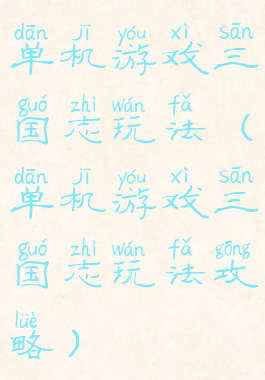 dān jī yóu xì sān
单机游戏三
guó zhì wán fǎ
国志玩法（
dān jī yóu xì sān
单机游戏三
guó zhì wán fǎ gōng
国志玩法攻
lüè
略）